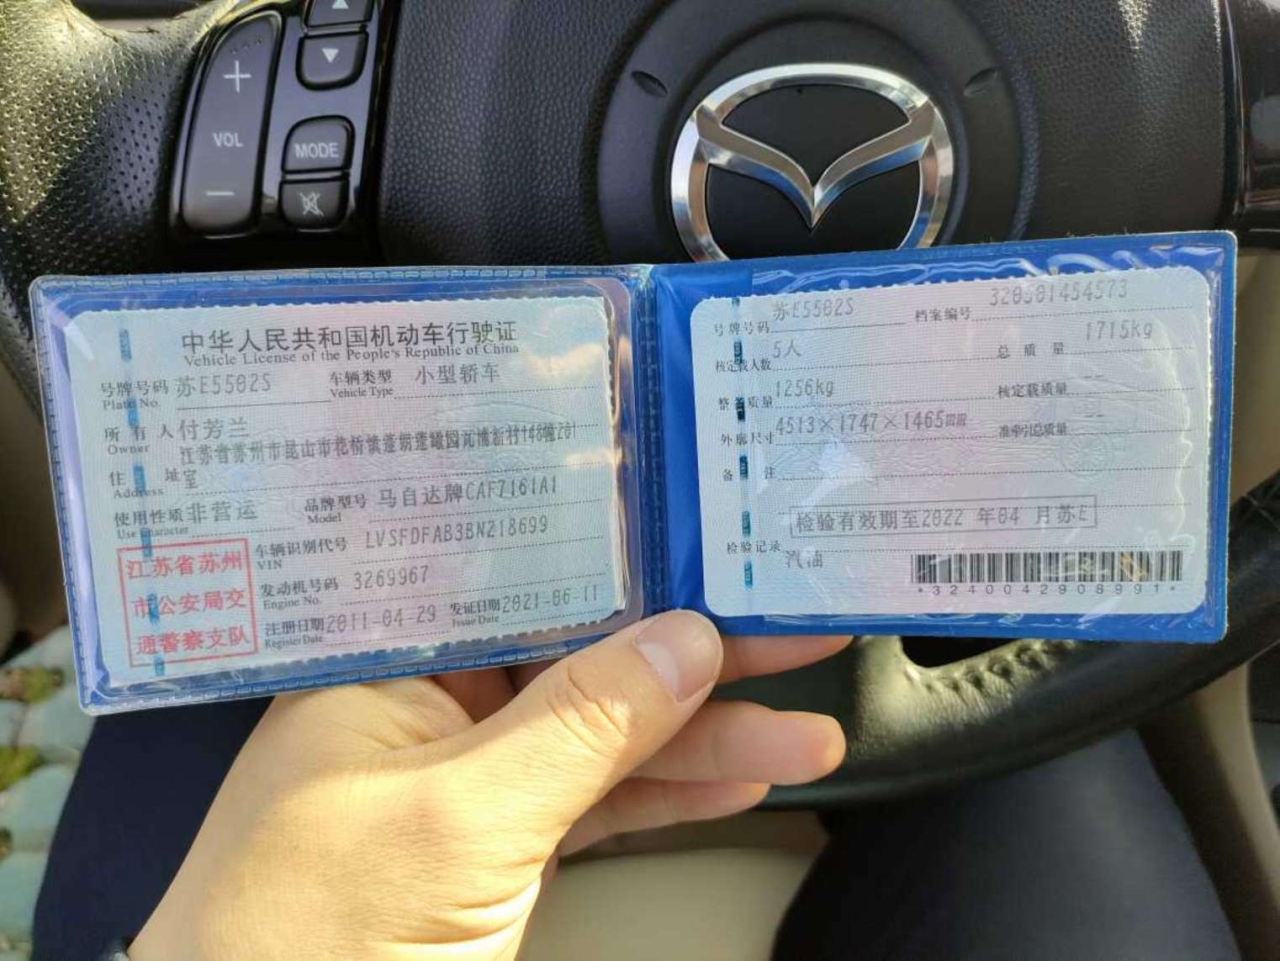 VOL
MODE
中华人民共和国机动车行驶证
Vehicle License of the People's Republic of China
号牌号码 苏E5502S 车辆类型 小型轿车
Plate No. Vehicle Type
所有人 付芳兰
Owner
江苏省苏州市昆山市花桥镇蓬朗蓬曦园元浦新村148幢201
住址 室
Address
使用性质 非营运 品牌型号 马自达牌CAF7161A1
Use Character Model
江苏省苏州
市公安局交
通警察支队
车辆识别代号 LVSFDFAB3BN218699
VIN
发动机号码 3269967
Engine No.
注册日期 2011-04-29 发证日期 2021-06-11
Register Date Issue Date
号牌号码 苏E5502S 档案编号 320501454573
核定载人数 5人 总质量 1715kg
整备质量 1256kg 核定载质量 --
外廓尺寸 4513×1747×1465mm 准牵引总质量 --
备注
检验有效期至2022 年04 月苏E
检验记录
汽油
*3240042908991*